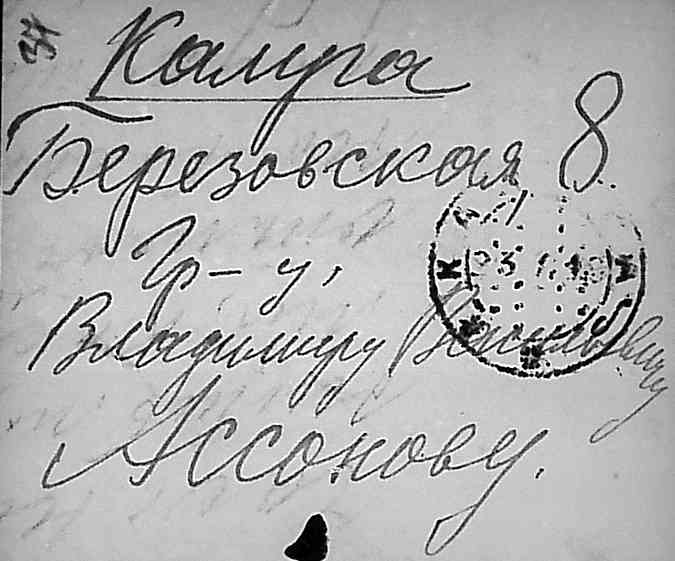 Калуга
Березовская 8.
Гр-у,
Владимиру Васильевичу
Ассонову.